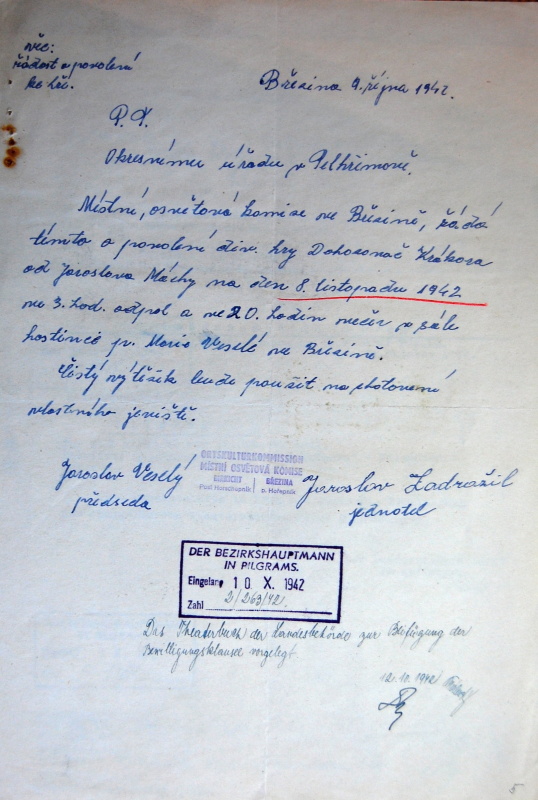 věc:
žádost o povolení
ke hře.
Březina 9. října 1942.
P. T.
Okresnímu úřadu v Pelhřimově.
Místní, osvětová komise ve Březině, žádá
tímto o povolení div. hry Dohazovač Krákora
od Jaroslava Máchy na den 8. listopadu 1942
ve 3. hod. odpol a ve 20. hodin večer v sále
hostince pí. Marie Veselé ve Březině.
Čistý výtěžek bude použit na zhotovení
vlastního jeviště.
ORTSKULTURKOMMISSION
MÍSTNÍ OSVĚTOVÁ KOMISE
BŘEZINA
Post p. Hořepník
Jaroslav Veselý
předseda
Jaroslav Zadražil
jednatel
DER BEZIRKSHAUPTMANN
IN PILGRAMS.
Eingelangt 10 X. 1942
Zahl 2/263/42
Das Theaterbuch der Landesbehörde zur Beifügung der
Bewilligungsklausel vorgelegt.
12.10.1942
5